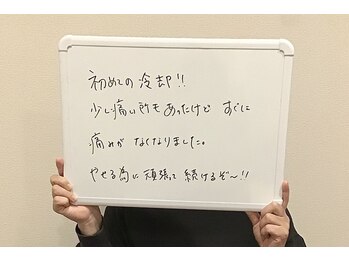 初めての冷却!!
少し痛い所もあったけど すぐに
痛みがなくなりました。
やせる為に頑張って続けるぞ〜!!